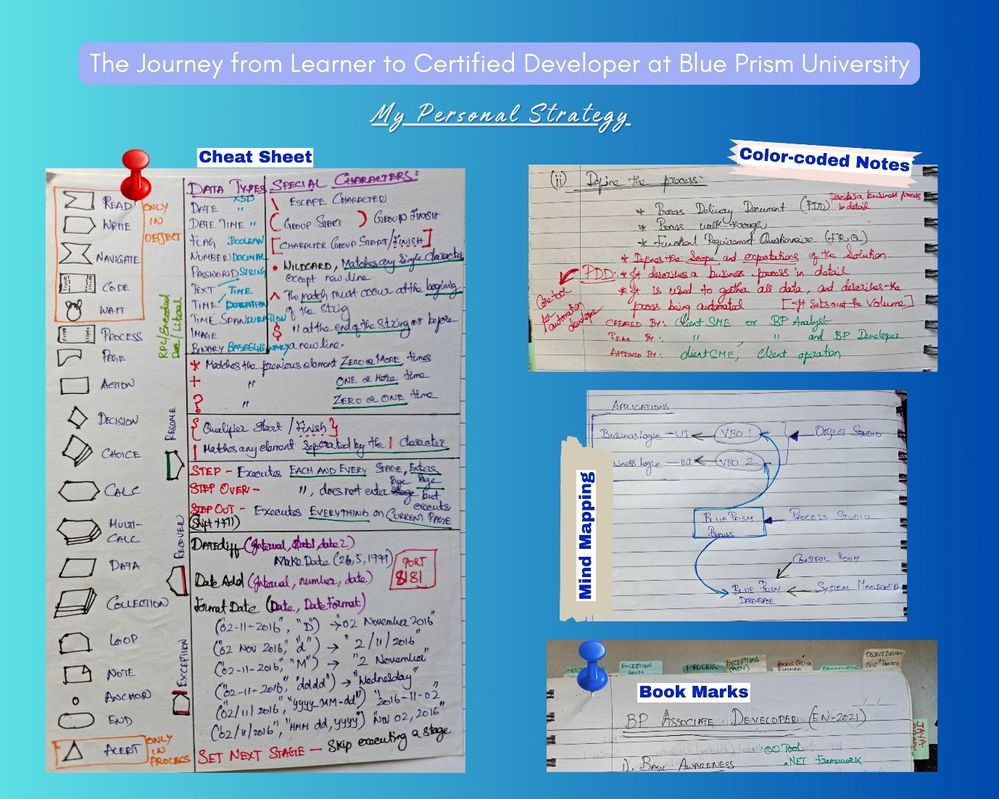 The Journey from Learner to Certified Developer at Blue Prism University
My Personal Strategy
Cheat Sheet
READ
WRITE
NAVIGATE
CODE
WAIT
ONLY
IN
OBJECT
PROCESS
PAGE
ACTION
DECISION
CHOICE
CALC
MULTI-
CALC
DATA
COLLECTION
LOOP
NOTE
ANCHOR
END
ALERT
ONLY
IN
PROCESS
RESUME
RECOVER
EXCEPTION
DATA TYPES
XSD
DATE "
DATE TIME "
FLAG BOOLEAN
NUMBER DECIMAL
PASSWORD STRING
TEXT
TIME TIME
TIME SPAN DURATION
IMAGE
BINARY BASE64BINARY
SPECIAL CHARACTERS:
\ ESCAPE CHARACTER
( GROUP START ) GROUP FINISH
[ CHARACTER GROUP START / FINISH ]
. WILDCARD, Matches any Single Character
except new line
^ The match must occur at the beginning
of the String
$ " at the end of the String or before
a new line.
* Matches the previous element ZERO OR MORE times
+ " ONE OR More time
? " ZERO OR ONE time
{ Qualifier Start / Finish }
| Matches any element Separated by the | Character
STEP - Executes EACH AND EVERY STAGE, Enters
Page
STEP OVER - ", does not enter Page but
executes
STEP OUT - Executes EVERYTHING on CURRENT PAGE
(Shift + F11)
DateDiff (Interval, date1, date2)
MakeDate (26, 5, 1997)
Date Add (Interval, number, date)
PORT
8181
Format Date (Date, DateFormat)
("02-11-2016", "D") → 02 November 2016
("02 Nov 2016", "d") → "2/11/2016"
("02-11-2016", "M") → "2 November"
("02-11-2016", "dddd") → "Wednesday"
("02/11/2016", "yyyy-MM-dd") "2016-11-02"
("02/11/2016", "MMM dd, yyyy") "Nov 02, 2016"
SET NEXT STAGE - Skip executing a stage
Color-coded Notes
(ii) Define the process:
* Process Delivery Document (PDD) Describes business process
in detail
* Process walk-through
* Functional Requirement Questionnaire (FRQ)
* Defines the Scope and expectations of the Solution.
PDD: * It describes a business process in detail
* It is used to gather all data, and describes the
process being automated [It Sets out the Volume]
CREATED BY: client SME or BP Analyst
READ BY: " " and BP Developer
client SME, Client operation
Mind Mapping
APPLICATIONS
Business Logic - UI VBO 1 OBJECT STUDIO
Business Logic - UI VBO 2
BLUE PRISM PROCESS STUDIO
CONTROL ROOM
BLUE PRISM
DATABASE
SYSTEM MANAGER
Book Marks
EXCEPTION
PROCESS
EXCEPTIONS
BP ASSOCIATE DEVELOPER (EN-2021)
i). BASIC AWARENESS
OO Tool
.NET Framework